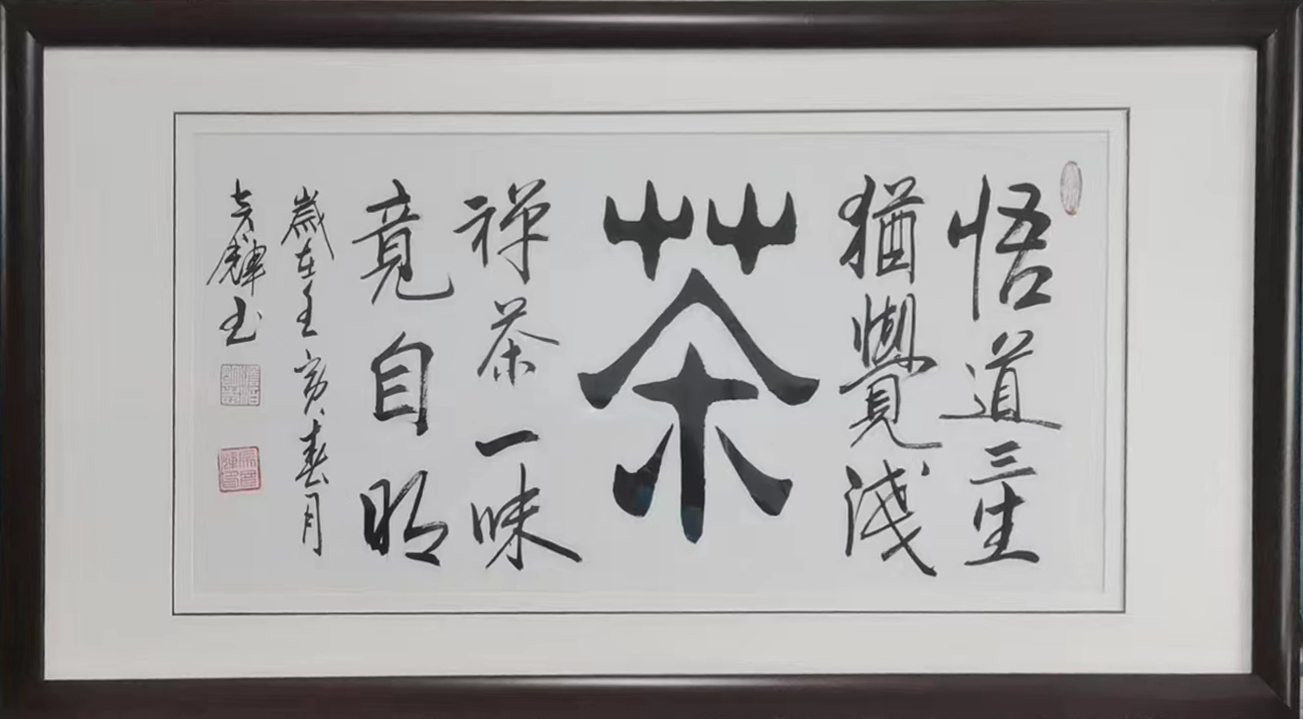 悟道三生
猶覺淺
茶
禅茶一味
竟自明
歲在壬寅春月
輝书